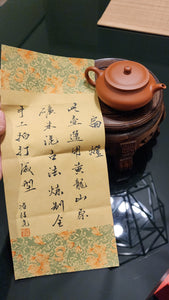 扁燈
是壺選用黃龍山原
礦朱泥古法煉制全
手工拍打成型